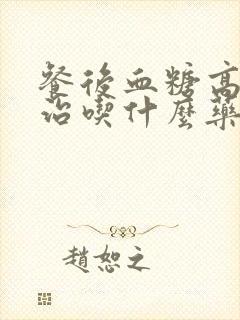 餐後血糖高
治喫什麼藥
趙恕之